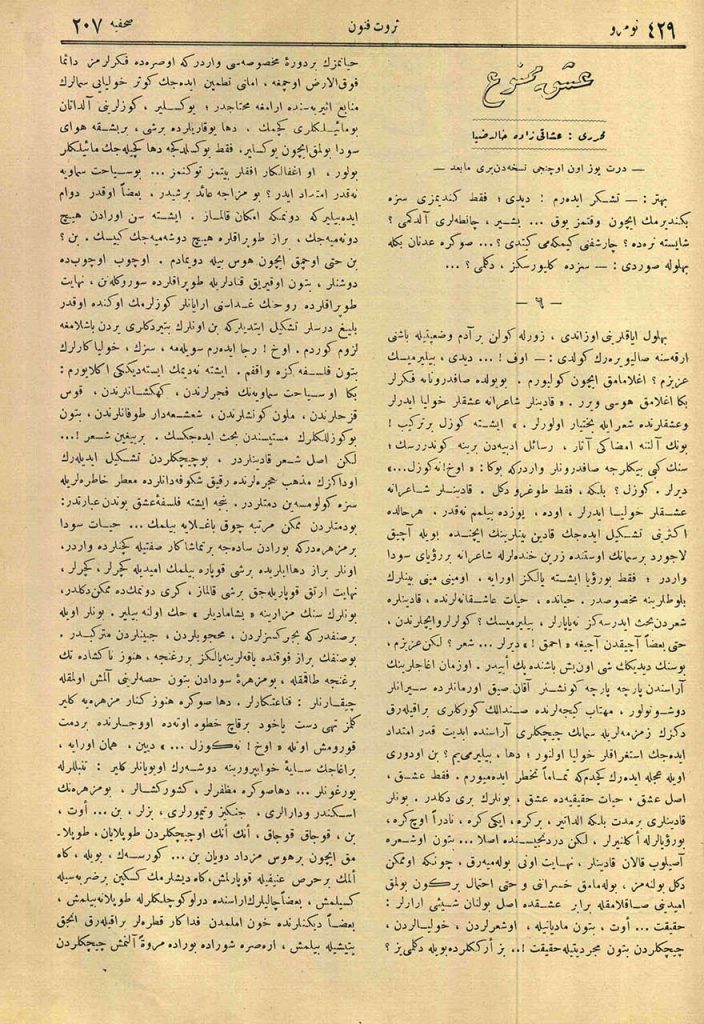 نومرو ٤٢٩
ثروت فنون
صحیفه ٢٠٧
عشق ممنوع
محرری : عشاقی زاده خالد ضیا
— درت یوز اون اوچنجی نسخه‌دن‌بری مابعد —
بهتر : — تشکر ایده‌رم : دیدی ؛ فقط کندیمزی سزه
بکندیرمك ایچون وقتمز یوق ... بشیر ، چانطه‌لری آلدکمی ؟
شایسته نره‌ده ؟ چارشفنی کیمکه‌می کیتدی ؟ ... صوکره عدنان بکله
بهلوله صوردی : — سزده کلیورسکز ، دکلمی ؟ ...
— ٩ —
بهلول ایاقلرینی اوزاتدی ، زورله کولن بر آدم وضعیتیله باشنی
آرقه‌سنه صالیویره‌رك کولدی : — اوف ! ... دیدی ، بیلیرمیسك
عزیزم ؟ اغلامامق ایچون کولیورم . بویولده صافدرونانه فکرلر
بکا اغلامق هوسی ویرر . « قادینلر شاعرانه عشقلر خولیا ایدرلر
وعشقلرنده شعر ایله بختیار اولورلر . » ایشته کوزل برترکیب !
بونك آلتنه امضاکی آتار ، رسائل ادبیه‌دن برینه کوندررسك ؛
سنك کبی بیکلرجه صافدرونلر واردرکه بوکا : « اوخ! نه‌کوزل...»
دیرلر . کوزل ؟ بلکه ، فقط طوغرو دکل . قادینلر شاعرانه
عشقلر خولیا ایدرلر ، اوده ، یوزده بیلمم نه‌قدر . هرحالده
اکثرنی تشکیل ایده‌جك قادین بینلرینك ایچنده بویله آچیق
لاجورد برسمانك اوستنده زرین خنده‌لرله شاعرانه بررؤیای سودا
واردر ؛ فقط بورؤیا ایشته یالکز اورایه ، اومینی مینی بینلرك
بلوطلرینه مخصوصدر . حیاتده ، حیات عاشقانه‌لرنده ، قادینلره
شعردن بحث ایدرسه‌کز نه‌یاپارلر ، بیلیرمیسك ؟ کولرلر وایچلرندن ،
حتی بعضاً آچیقدن آچیغه « احمق ! » دیرلر ... شعر ؟ لکن عزیزم ،
بوسنك دیدیکك شی اون‌بش باشنده‌پك أییدر . اوزمان اغاجلرینك
آراسندن پارچه پارچه کونشلر آقان صیق اورمانلرده سیرانلر
دوشونولور ، مهتاب کیجه‌لرنده صندالك کورکلری براقیله‌رق
دکزك زمزمه‌لریله سمانك چیچکلری آراسنده ابدیت قدر امتداد
ایده‌جك استغراقلر خولیا اولنور ؛ دها ، بیلیرمی‌یم ؟ بن اودوری
اویله عجله ایده‌رك کچدم‌که تماماً تخطر ایده‌میورم . فقط عشق ،
اصل عشق ، حیات حقیقیه‌ده عشق ، بونلرك بری دکلدر . بونلر
قادینلری برمدت بلکه الداتیر ، برکره ، ایکی کره ، نادراً اوچ‌کره ،
بورؤیالرله أکلنیرلر . لکن دردنجیسنده اصلا ... بتون اوشعره
آصیلوب قالان قادینلر ، نهایت اونی بوله‌میه‌رق ، چونکه اوممکن
دکل بولنه‌مز ، بوله‌مامق خسرانی و حتی احتمال برکون بولمق
امیدینی صاقلامقله برابر عشقده اصل بولنان شیئی ارارلر :
حقیقت ... أوت ، بتون مادیاتیله ، اوشعرلردن ، خولیالردن ،
چیچکلردن بتون مجردیتیله حقیقت !.. بز أرککلرده بویله دکلمی‌یز ؟
حیاتمزك بردوره‌ٔ مخصوصه‌سی واردرکه اوصره‌ده فکرلرمز دائما
فوق‌الارض اوچمغه ، امانی تطمین ایده‌جك کوثر خولیایی سمالرك
منابع اثیریه‌سنده آرامغه محتاجدر ؛ یوکسلیر ، کوزلرینی آلداتان
بومائیلکلری کچمك . دها یوقاریلرده برشی ، بریشقه هوای
سودا بولمق ایچون یوکسلیر ، فقط یوکسلدکجه دها کچیله‌جك مائیلکلر
بولور ، او اغفالکار افقلر بیتمز توکنمز ... بوسیاحت سماویه
نه‌قدر امتداد ایدر ؟ بو مزاجه عائد برشیدر ، بعضاً اوقدر دوام
ایده‌بیلیرکه دونمکه امکان قالماز . ایشته سن اورادن هیچ
دونه‌میه‌جك ، براز طوپراقلره هیچ دوشه‌میه‌جك کیبسك . بن ؟
بن حتی اوچمق ایچون هوس بیله دویمادم . اوچوب اوچوب‌ده
دوشنلر ، بتون اوقیریق قنادلریله طوپراقلرده سوروکله‌نن ، نهایت
طوپراقلرده روحك غداسنی ارایانلر کوزلرمك اوکنده اوقدر
بلیغ درسلر تشکیل ایتدیلرکه بن اونلرك بتیردکلری یردن باشلامغه
لزوم کوردم . اوخ ! رجا ایده‌رم سویله‌مه ، سزك ، خولیا کارلرك
بتون فلسفه‌کزه واقفم . ایشته نه‌دیمك ایسته‌دیککی اکلایورم :
بکا اوسیاحت سماویه‌نك فجرلرندن ، کهکشانلرندن ، قوس
قزحلرندن ، ملون کونشلرندن ، شعشعه‌دار طوفانلرندن ، بتون
بوکوزللکلرك مستیسندن بحث ایده‌جکسك . بریغین شعر !...
لکن اصل شعر قادینلردر ، بوچیچکلردن تشکیل ایدیله‌رك
اوداکزك مذهب حجره‌لرنده رقیق شکوفه‌دانلرده معطر خاطره‌لریله
سزه کولومسه‌ین دمتلردر . بنجه ایشته فلسفه‌ٔ عشق بوندن عبارتدر :
بودمتلردن ممکن مرتبه چوق باغلایه بیلمك ... حیات سودا
برمزهره‌درکه بورادن ساده‌جه برتماشا کار صفتیله کچنلرده واردر ،
اونلر براز دها ایلریده برشی قوپاره بیلمك امیدیله کچرلر ، کچرلر ،
نهایت ارتق قوپاریله‌جق برشی قالماز ، کری دونمك‌ده ممکن‌دکلدر ،
بونلرك سنك مزارینه « یشامادیلر » حك اولنه بیلیر . بونلر اویله
برصنفدرکه بجرکسزلردن ، محجوبلردن ، جبینلردن مترکبدر .
بوصنفك براز فوقنده یاقه‌لرینه‌یالکز برغنجه ، هنوز ناکشاده تك
برغنجه طاقمقله ، بومزهره‌ٔ سودادن بتون حصه‌لرینی آلمش اولمقله
چیقارنلر : قناعتکارلر . دها صوکره هنوز کنار مزهره‌یه کلیر
کلمز تهی دست یاخود برقاچ خطوه اوته‌ده اووجلارنده بردمت
قورومش اوتله « اوخ ! نه‌کوزل ... » دیین ، همان اورایه ،
براغاجك سایه‌ٔ خوابپرورینه دوشه‌رك اویویانلر کلیر : تنبللرله
یورغونلر ... دهاصوکره مظفرلر ، کشورکشالر ، بومزهره‌نك
اسکندر ودارالری ، جنکیز وتیمورلری ، بزلر ، بن ... أوت ،
بن ، قوجاق قوجاق ، أتك أتك اوچیچکلردن طوپلایان ، طوپلا-
مق ایچون برهوس مزداد دویان بن ... کورسه‌ك ، بویله ، کاه
ألمك برحرص عنیفیله قوپارلمش ، کاه دیشلرمك کسکین برضربه‌سیله
کسیلمش ، بعضاً چالیلرك اراسنده درلو کوچلکلرله طوپلانه‌بیلمش ،
بعضاً دیکنلرنده خون املمدن فداکار قطره‌لر براقیله‌رق انجق
یتیشیله بیلمش ، اره‌صره شوراده بوراده مروة آلنمش چیچکلردن